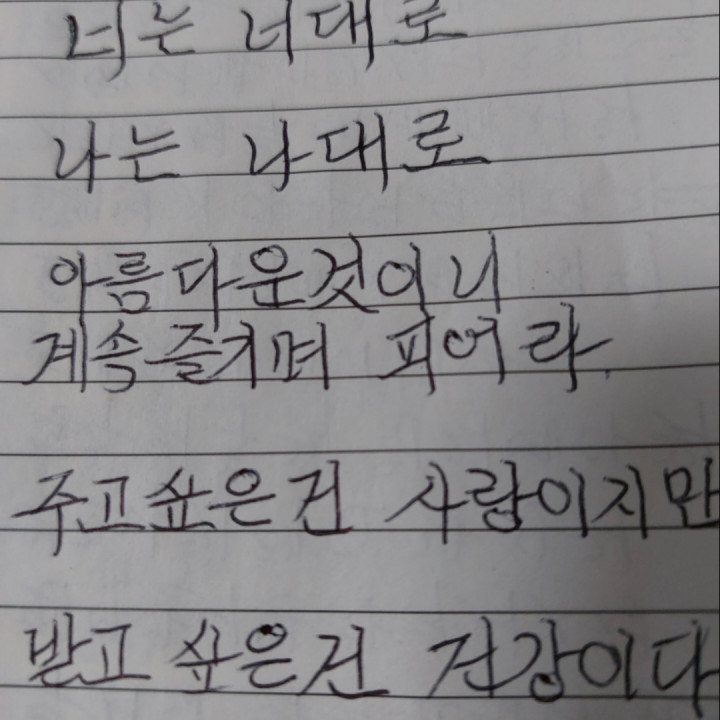 너는 너대로
나는 나대로
아름다운것이니
계속 즐기며 피어라.
주고싶은건 사랑이지만
받고 싶은건 건강이다